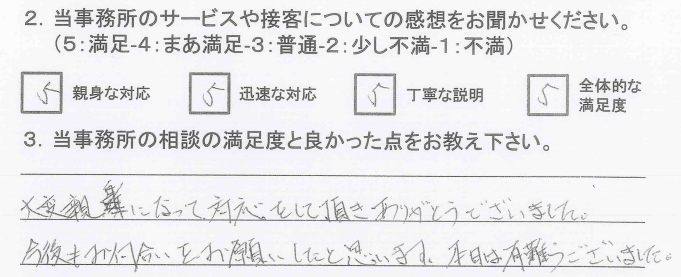 2. 当事務所のサービスや接客についての感想をお聞かせください。
(5:満足-4:まあ満足-3:普通-2:少し不満-1:不満)
5 親身な対応 5 迅速な対応 5 丁寧な説明 5 全体的な満足度
3. 当事務所の相談の満足度と良かった点をお教え下さい。
大変親身になって対応をして頂きありがとうございました。
今後もお付合いをお願いしたと思います。本日は有難うございました。